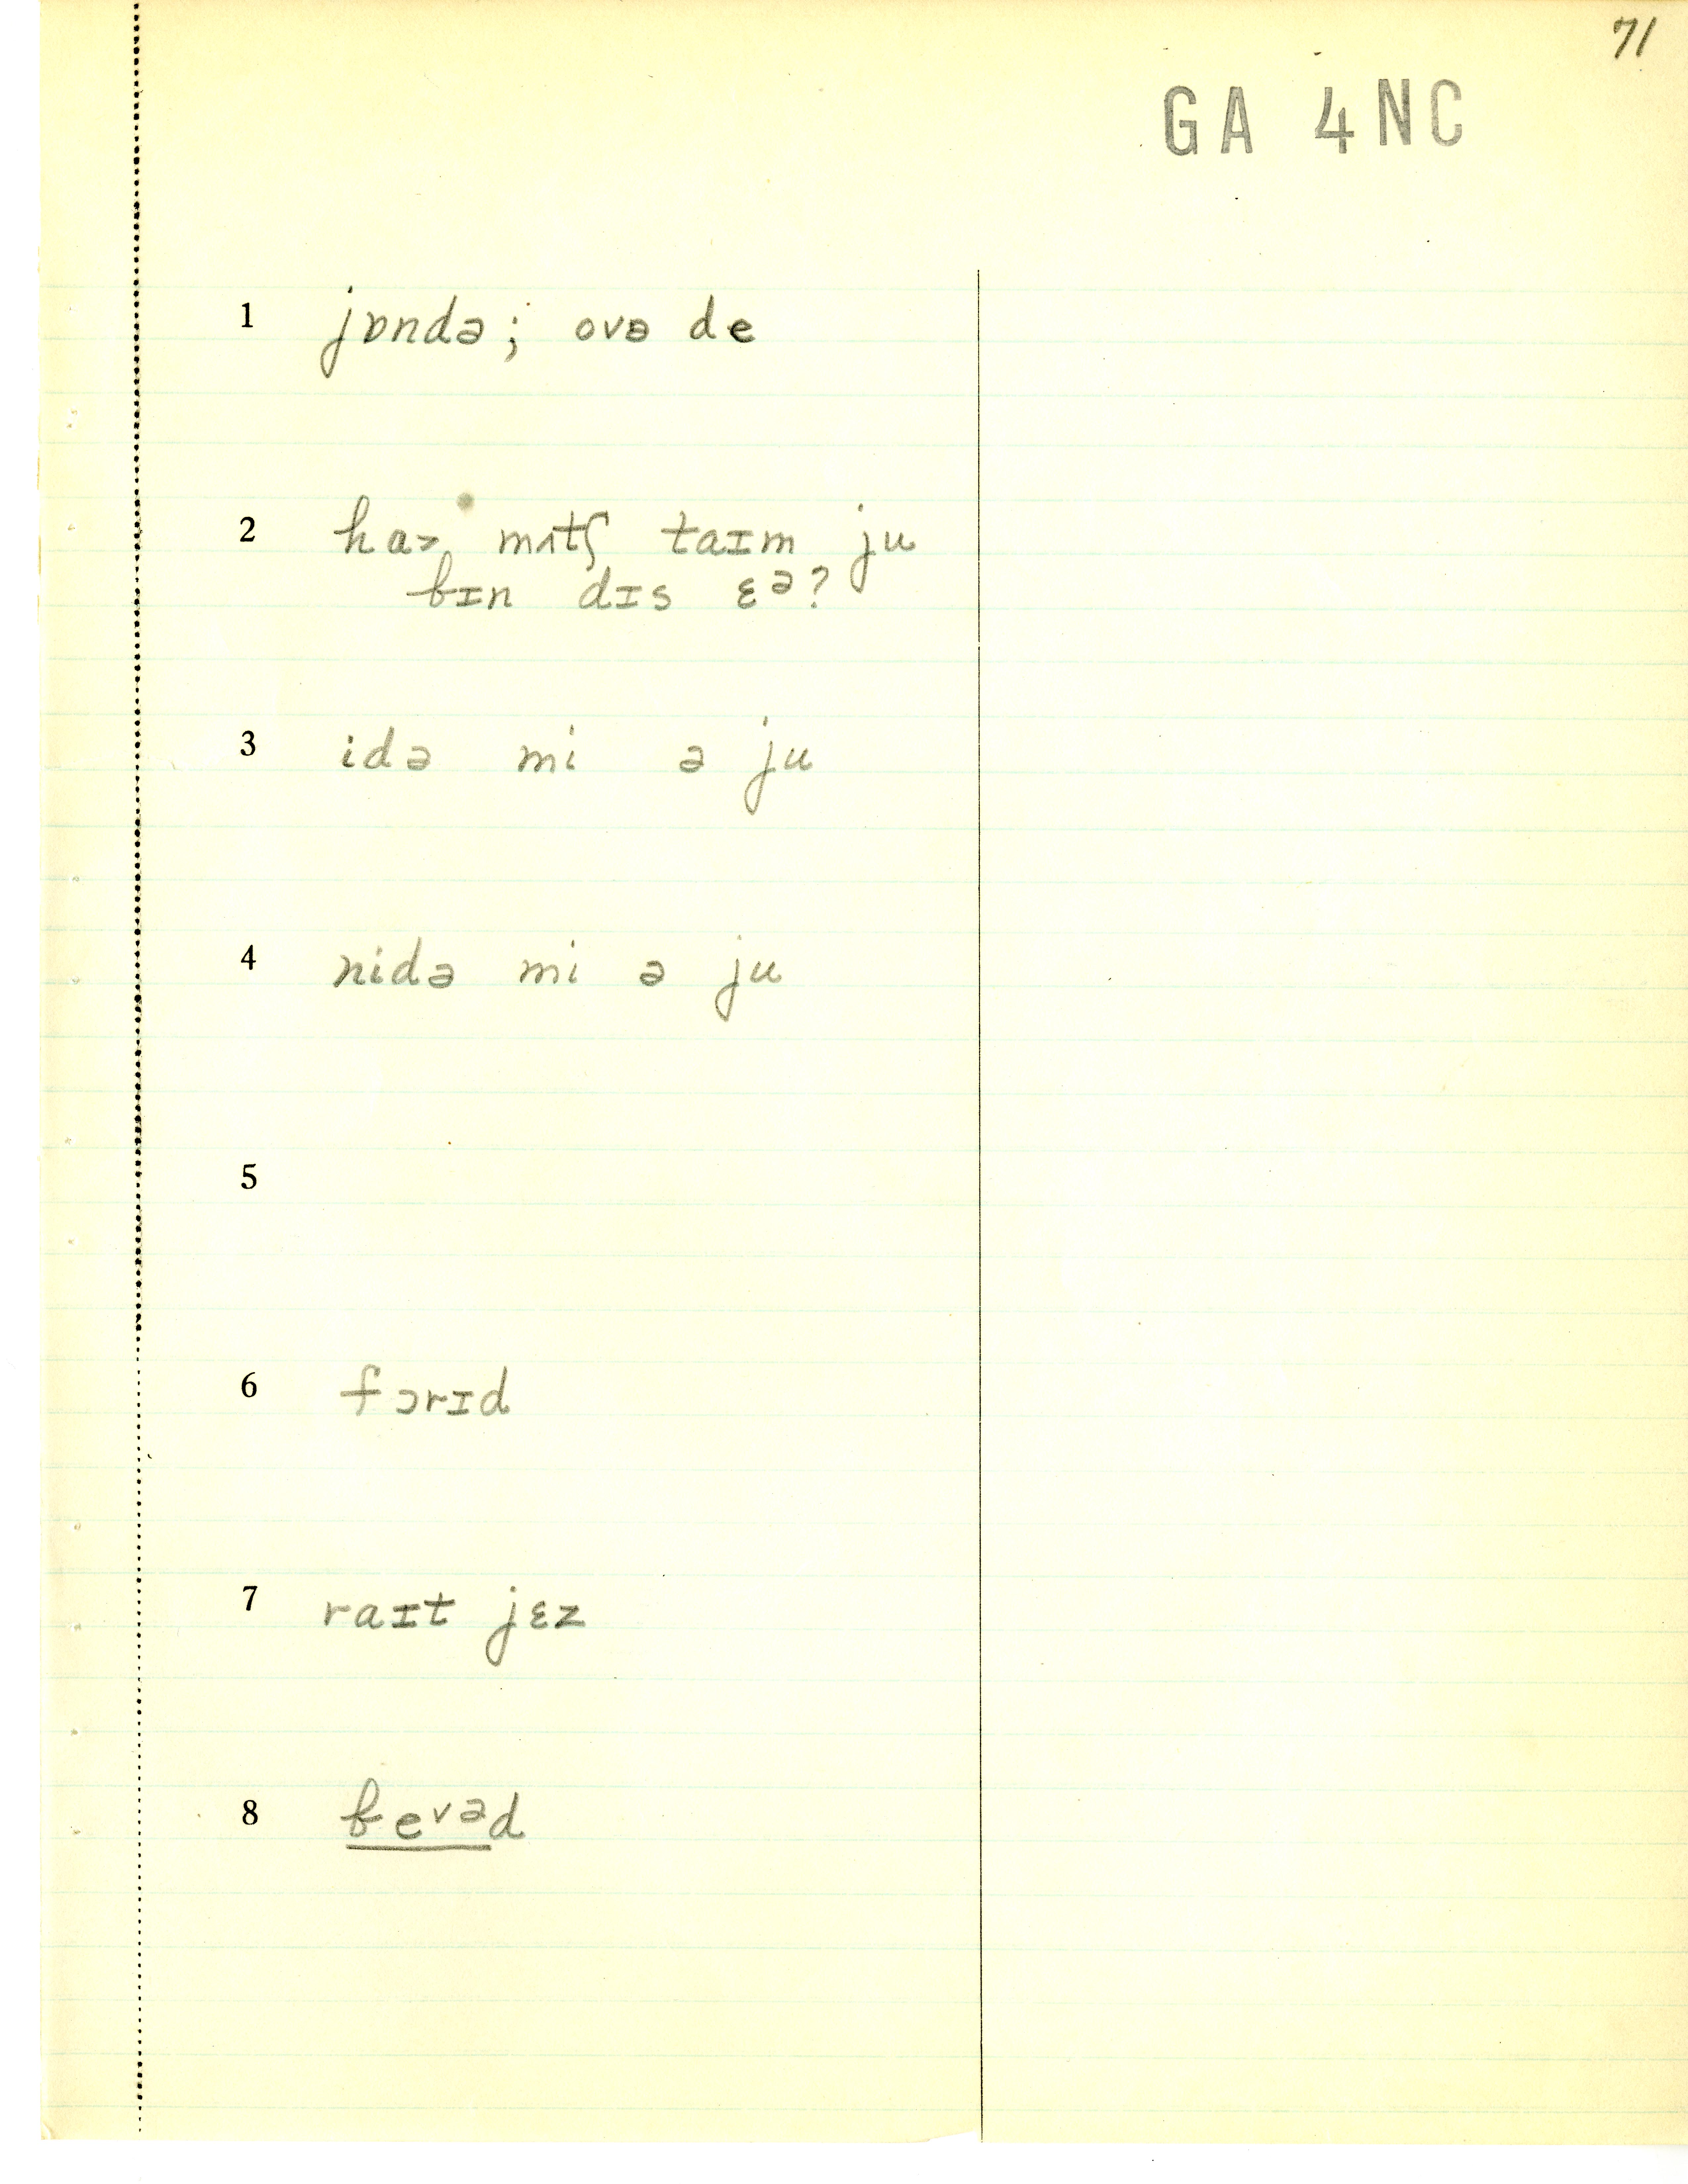 71
GA 4NC
1 jɒndə; ovə de
2 haɤ mʌtʃ taɪm ju
bɪn dɪs ɛə?
3 idə mi ə ju
4 nidə mi ə ju
5
6 fɔrɪd
7 raɪt jɛz
8 bevəd